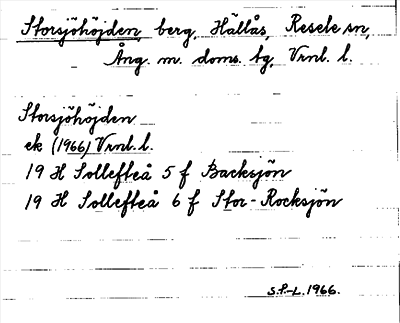 Storsjöhöjden, berg, Hällås, Resele sn,
Ång. m. doms. tg, Vrnl. l.
Storsjöhöjden
ek (1966) Vrnl. l.
19 H Sollefteå 5 f Backsjön
19 H Sollefteå 6 f Stor-Rocksjön
S.P-L. 1966.